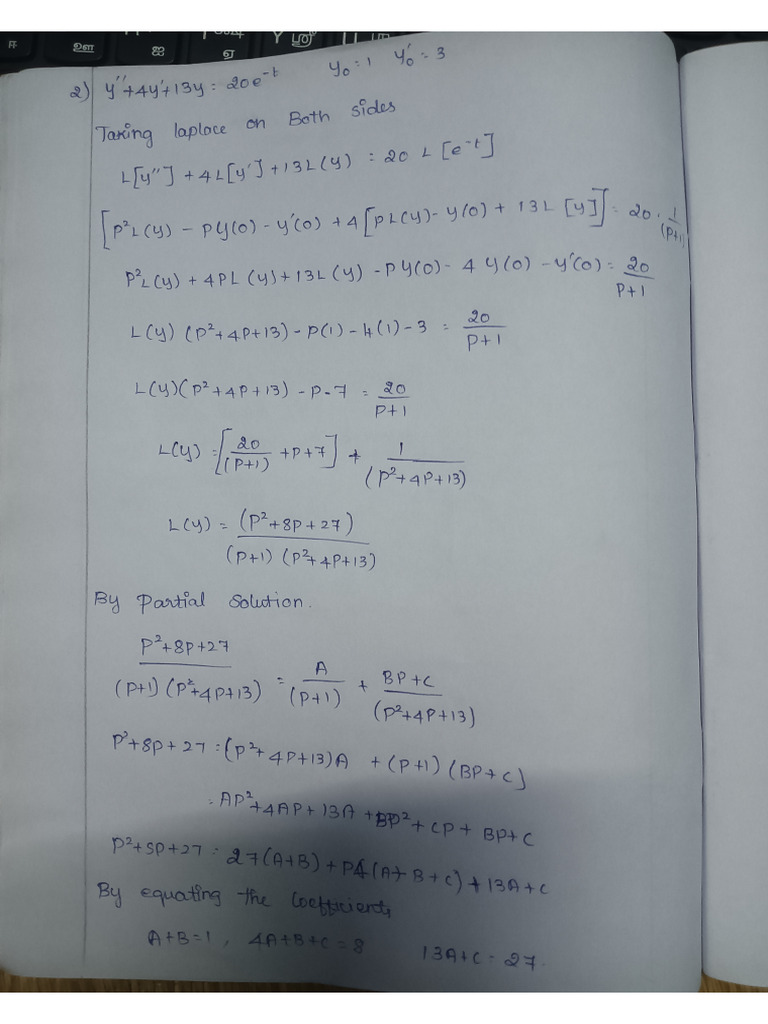 ஈ ஊ ஐ ஏ
2) y''+4y'+13y = 20e^-t y₀=1 y₀'=3
Taking laplace on Both sides
L[y''] + 4L[y'] + 13L(y) = 20 L[e^-t]
[P²L(y) - Py(0) - y'(0) + 4[PL(y) - y(0) + 13L[y]] = 20 . 1/(P+1)
P²L(y) + 4PL(y) + 13L(y) - Py(0) - 4y(0) - y'(0) = 20/P+1
L(y) (P²+4P+13) - P(1) - 4(1) - 3 = 20/P+1
L(y)(P²+4P+13) - P-7 = 20/P+1
L(y) = [20/(P+1) + P+7] + 1/(P²+4P+13)
L(y) = (P²+8P+27)/(P+1) (P²+4P+13)
By Partial Solution.
P²+8P+27/(P+1) (P²+4P+13) = A/(P+1) + BP+C/(P²+4P+13)
P²+8P+27 = (P²+4P+13)A + (P+1) (BP+C)
= AP²+4AP+13A+BP²+CP+BP+C
P²+8P+27 = 27(A+B)+P4(A+B+C)+13A+C
By equating the Coefficients
A+B=1, 4A+B+C=8 13A+C=27.